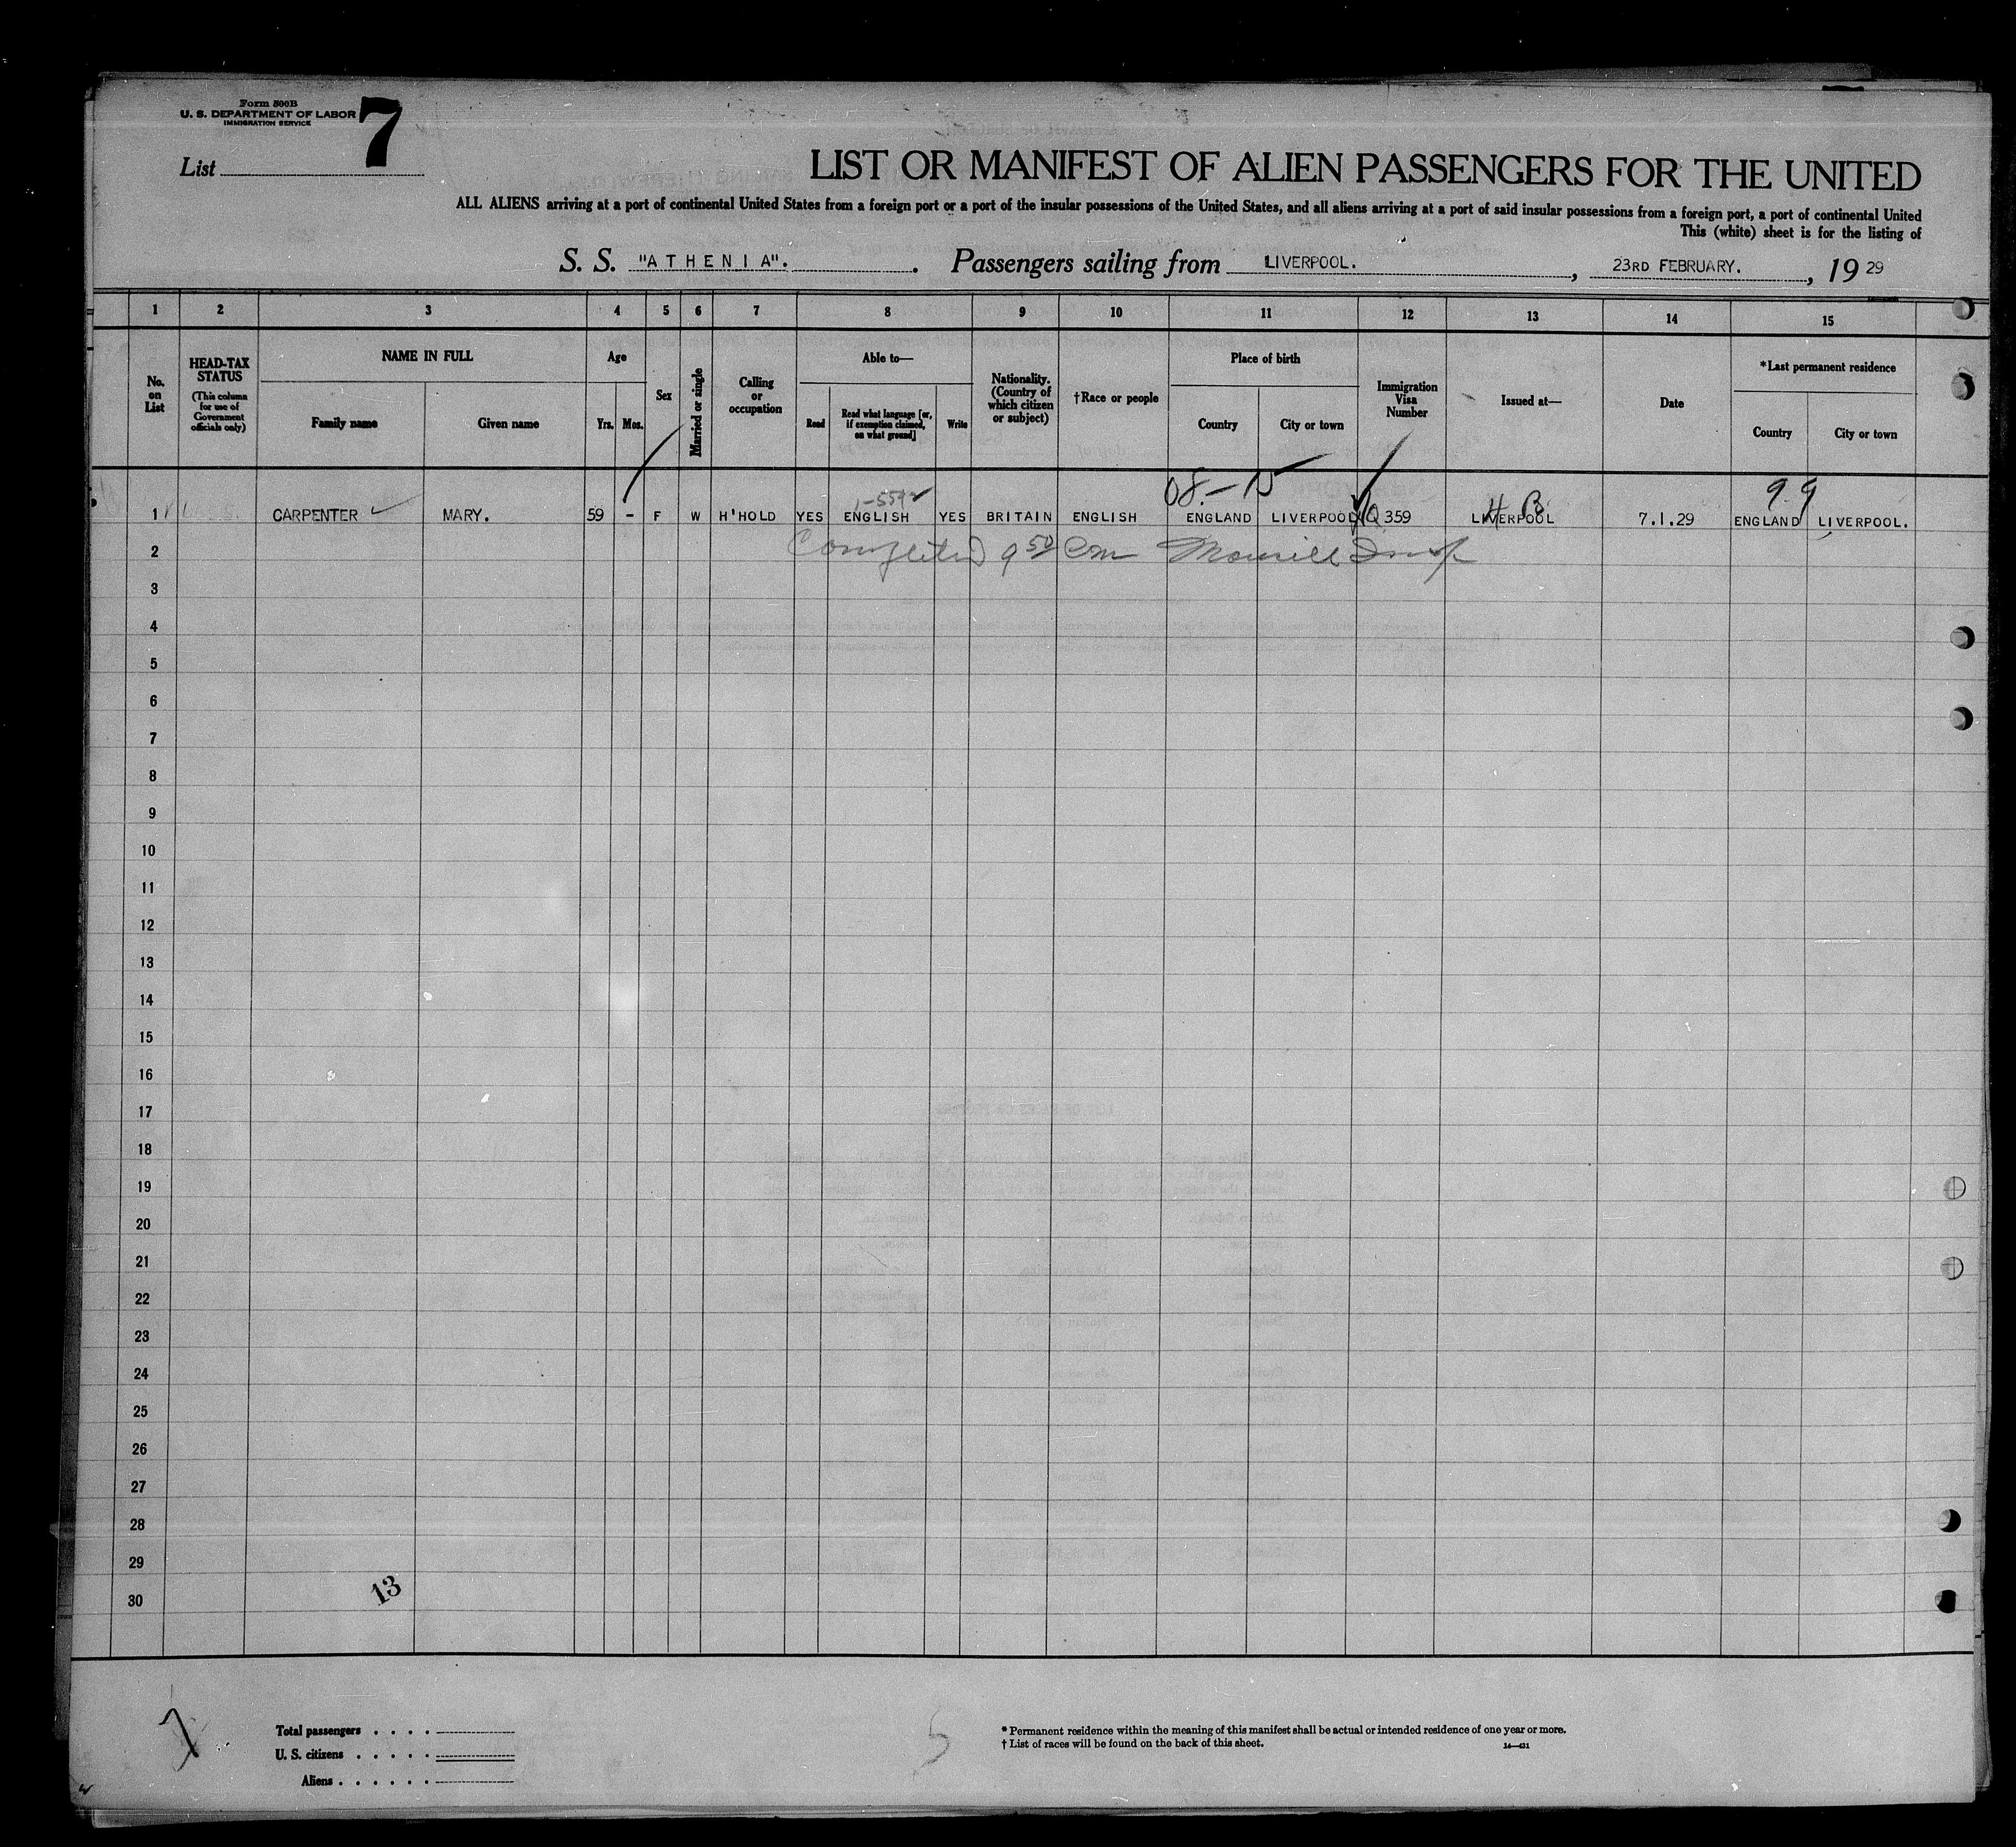 Form 500B
U. S. DEPARTMENT OF LABOR
IMMIGRATION SERVICE
7
List
LIST OR MANIFEST OF ALIEN PASSENGERS FOR THE UNITED
ALL ALIENS arriving at a port of continental United States from a foreign port or a port of the insular possessions of the United States, and all aliens arriving at a port of said insular possessions from a foreign port, a port of continental United
This (white) sheet is for the listing of
S. S. "ATHENIA". Passengers sailing from LIVERPOOL., 23RD FEBRUARY., 19 29
1 2 3 4 5 6 7 8 9 10 11 12 13 14 15
No. on List
HEAD-TAX STATUS
(This column for use of Government officials only)
NAME IN FULL
Family name Given name
Age
Yrs. Mos.
Sex
Married or single
Calling or occupation
Able to—
Read Read what language [or, if exemption claimed, on what ground] Write
Nationality. (Country of which citizen or subject)
†Race or people
Place of birth
Country City or town
Immigration Visa Number
Issued at—
Date
*Last permanent residence
Country City or town
08.—15 99
1 CARPENTER MARY. 59 - F W H'HOLD YES ENGLISH YES BRITAIN ENGLISH ENGLAND LIVERPOOL Q 359 LIVERPOOL 7.1.29 ENGLAND LIVERPOOL.
2 Completed 9 50
3
4
5
6
7
8
9
10
11
12
13
14
15
16
17
18
19
20
21
22
23
24
25
26
27
28
29
30
13
Total passengers . . . .
U. S. citizens . . . . .
Aliens . . . . . .
5
* Permanent residence within the meaning of this manifest shall be actual or intended residence of one year or more.
† List of races will be found on the back of this sheet.
14—431